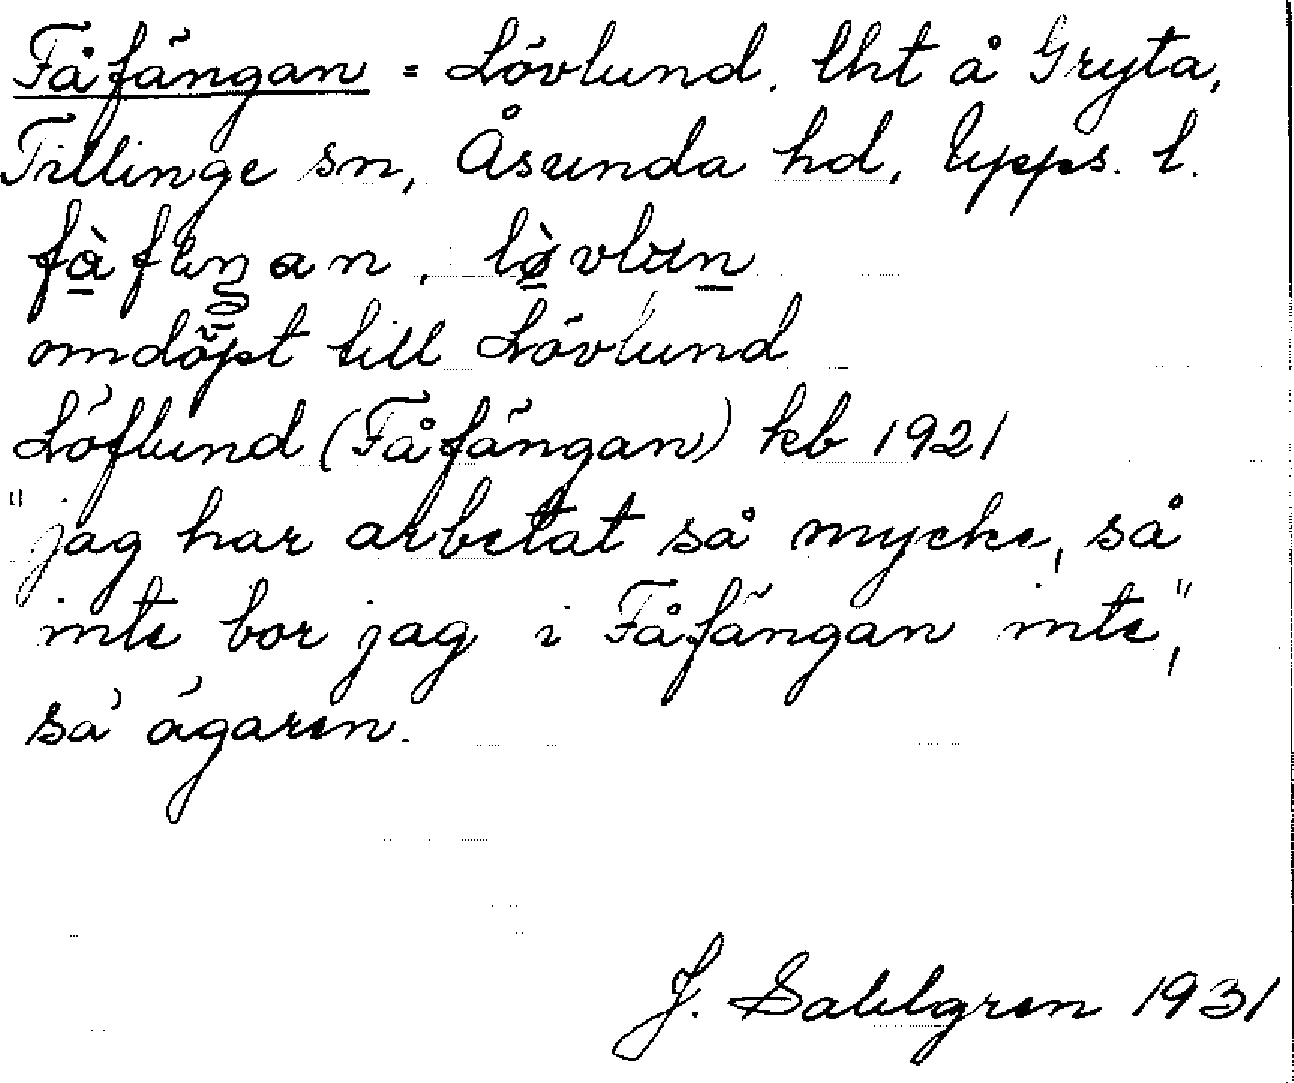 Fåfängan = Lövlund. lht å Gryta,
Tillinge sn, Åsunda hd, Upps. l.
omdöpt till Lövlund
Löflund (Fåfängan) kb 1921
"jag har arbetat så mycke, så
inte bor jag i Fåfängan inte",
sa' ägaren.
J. Sahlgren 1931